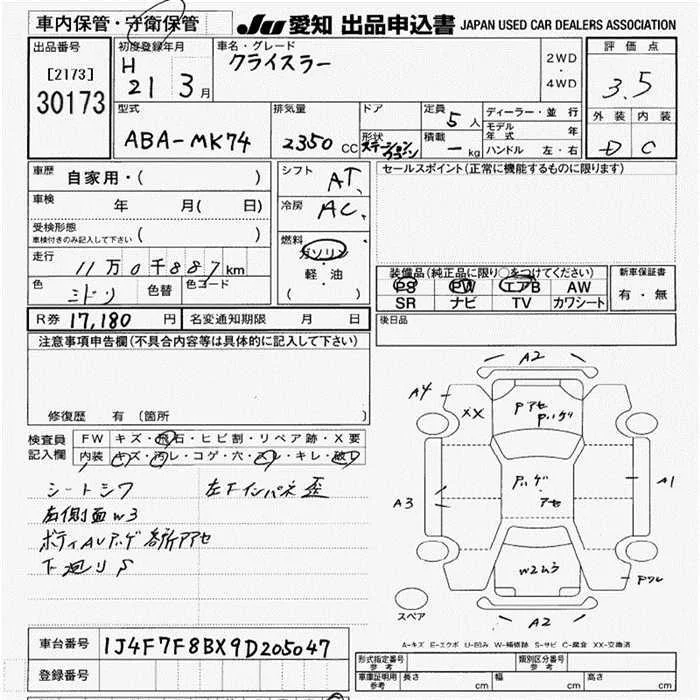 車内保管・守衛保管
JU 愛知 出品申込書 JAPAN USED CAR DEALERS ASSOCIATION
出品番号
[2173]
30173
初度登録年月
H 21 3月
車名・グレード
クライスラー
2WD
・
4WD
評価点
3.5
外装 内装
D C
型式
ABA-MK74
排気量
2350 CC
ドア
形状
ステーションワゴン
定員 5 人
積載 - kg
ディーラー・並行
モデル年式 年
ハンドル 左・右
車歴 自家用・( )
車検 年 月( 日)
受検形態
車検付きのみ記入して下さい ( )
走行 11万0千887km
色 ミドリ 色替 色コード
シフト AT
冷房 AC
燃料
ガソリン
・
軽・油
( )
セールスポイント(正常に機能するものに限ります)
装備品(純正品に限り○をつけてください)
PS PW エアB AW
SR ナビ TV カワシート
新車保証書
有・無
R券 17,180 円 名変通知期限 月 日
後日品
注意事項申告欄(不具合内容等は具体的に記入して下さい)
修復歴 有(箇所
検査員記入欄
FW キズ・飛石・ヒビ割・リペア跡・X要
内装 キズ・汚レ・コゲ・穴・スレ・キレ・破レ
シートシワ 左下インパネ歪
右側面W3
ボディAUハゲ各所アアセ
下廻りS
A2
A4
XX
Pアセ
Pハゲ
A3
ハゲ
・アセ
A1
W2ムラ
A2
スペア
A-キズ E-エクボ U-凹み W-補修跡 S-サビ C-腐食 XX-交換済
車台番号 1J4F7F8BX9D205047
登録番号
形式指定番号 参考
類別区分番号 参考
車庫証明用 参考 長さ cm 幅 cm 高さ cm